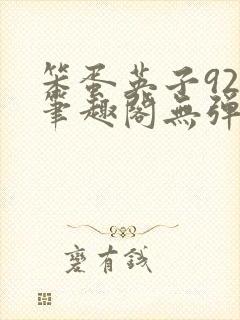 笨蛋英子92
筆趣閣無彈
麽有錢